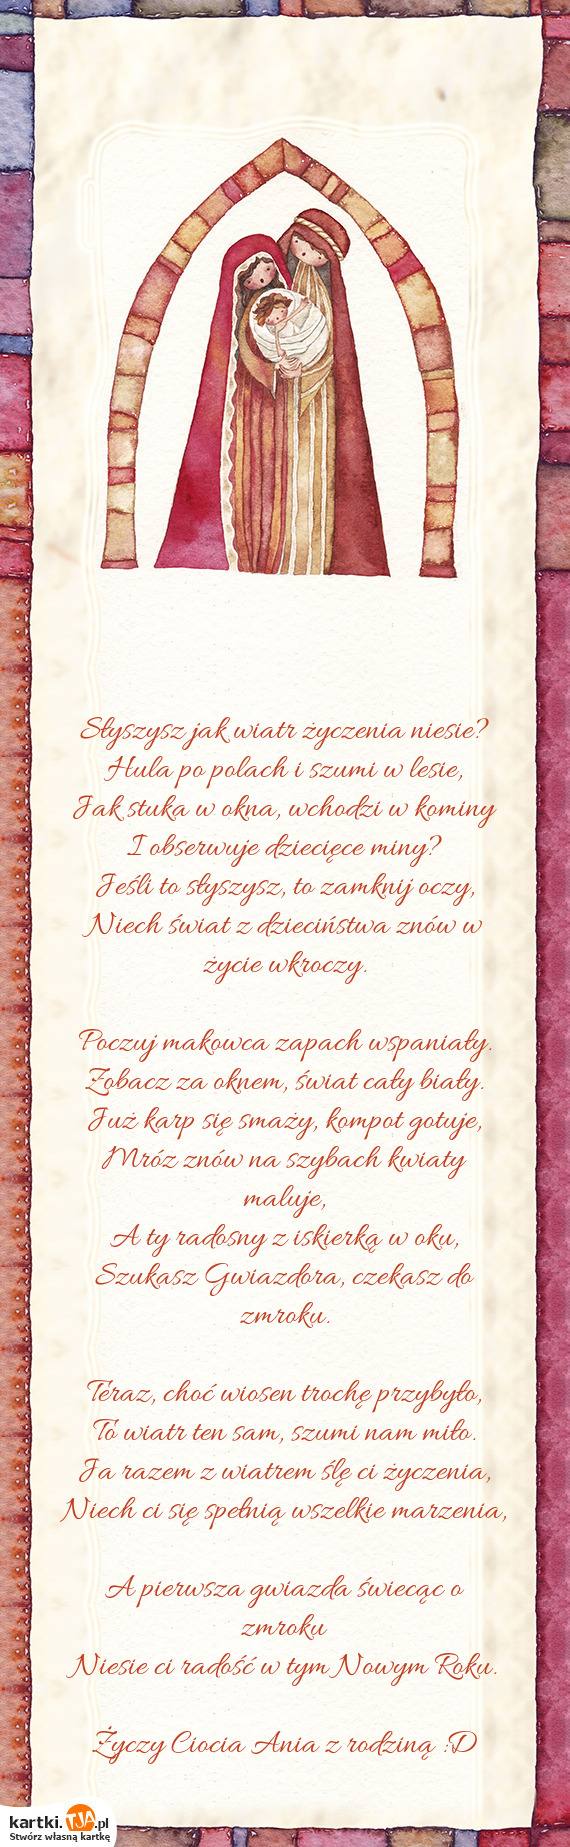 Słyszysz jak wiatr życzenia niesie?
Hula po polach i szumi w lesie,
Jak stuka w okna, wchodzi w kominy
I obserwuje dziecięce miny?
Jeśli to słyszysz, to zamknij oczy,
Niech świat z dzieciństwa znów w
życie wkroczy.
Poczuj makowca zapach wspaniały.
Zobacz za oknem, świat cały biały.
Już karp się smaży, kompot gotuje,
Mróz znów na szybach kwiaty
maluje,
A ty radosny z iskierką w oku,
Szukasz Gwiazdora, czekasz do
zmroku.
Teraz, choć wiosen trochę przybyło,
To wiatr ten sam, szumi nam miło.
Ja razem z wiatrem ślę ci życzenia,
Niech ci się spełnią wszelkie marzenia,
A pierwsza gwiazda świecąc o
zmroku
Niesie ci radość w tym Nowym Roku.
Życzy Ciocia Ania z rodziną :D
kartki.TJA.pl
Stwórz własną kartkę